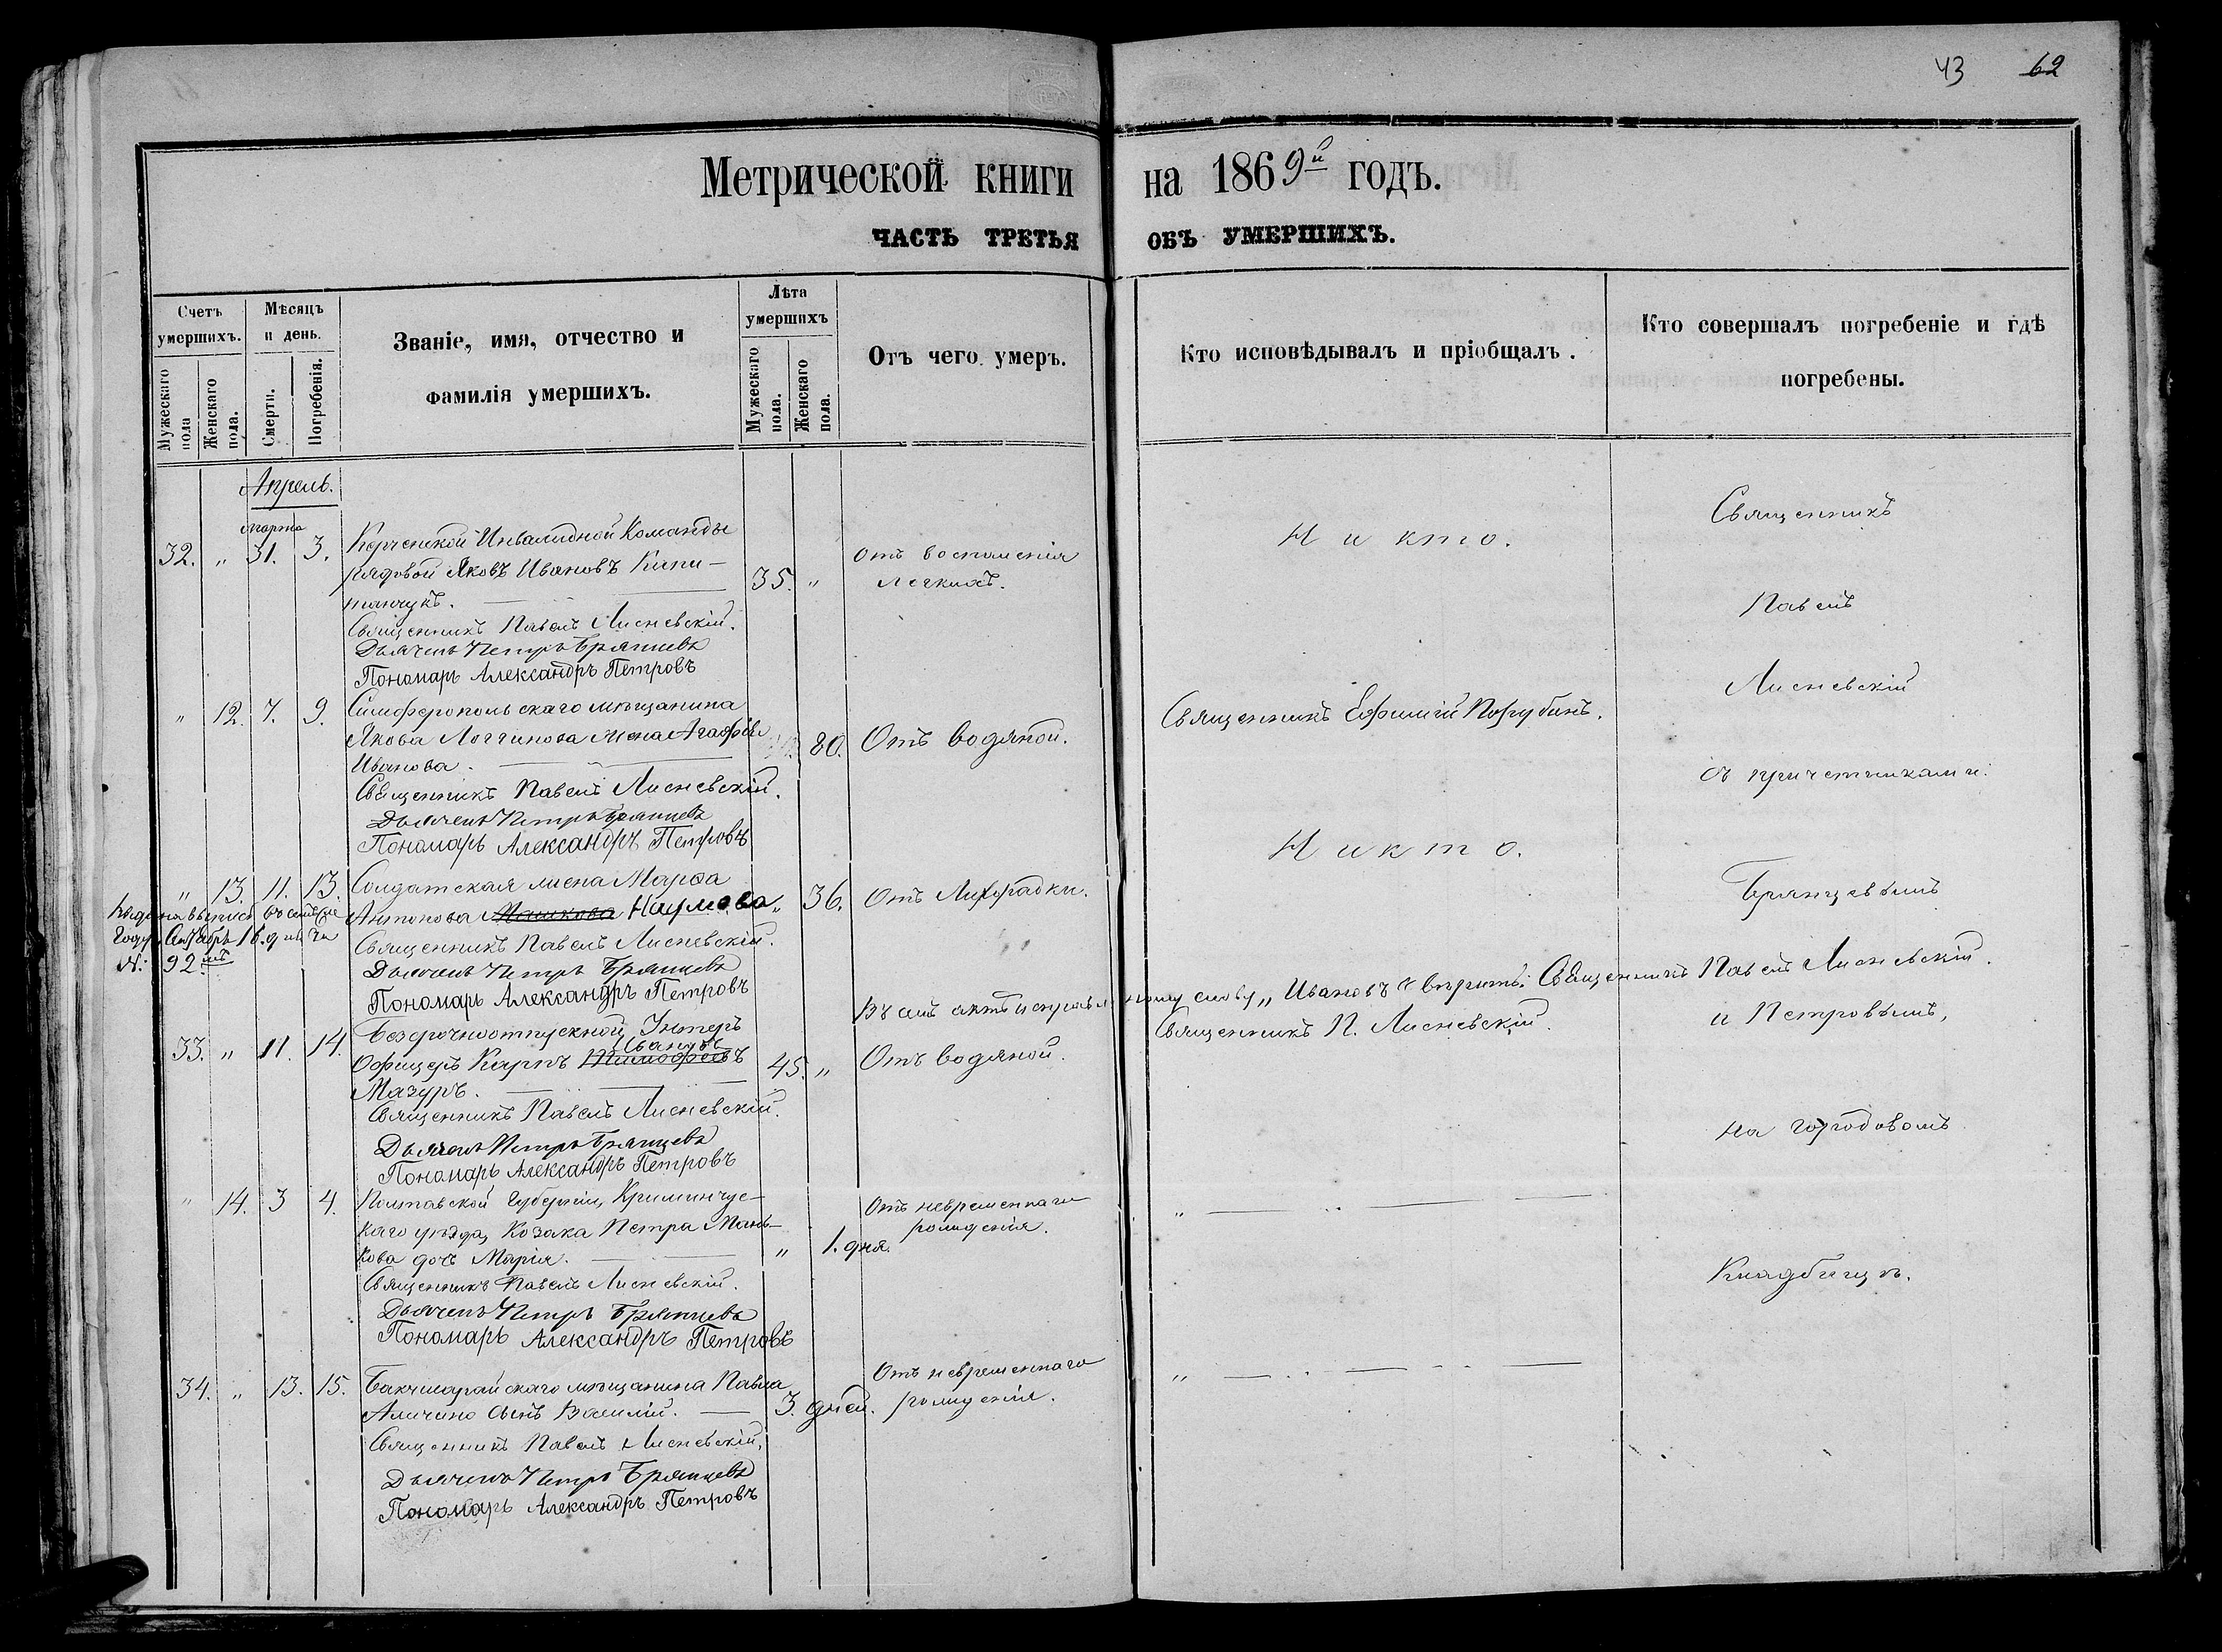 43 62
Метрической книги на 1869й годъ.
ЧАСТЬ ТРЕТЬЯ ОБЪ УМЕРШИХЪ.
Счетъ умершихъ.
Мужескаго пола
Женскаго пола.
Мѣсяцъ и день.
Смерти.
Погребенія.
Званіе, имя, отчество и
фамилія умершихъ.
Лѣта умершихъ
Мужескаго пола.
Женскаго пола.
Отъ чего умеръ.
Кто исповѣдывалъ и пріобщалъ.
Кто совершалъ погребеніе и гдѣ
погребены.
Апрель.
марта
32. " 31. 3. Керченской Инвалидной Команды
рядовой Яковъ Ивановъ Кипи-
танчукъ. 35. "
отъ воспаленія
легкихъ.
Никто.
Священникъ Павелъ Лисневскій.
Дьячекъ Петръ Брянцевъ
Пономарь Александръ Петровъ
" 12. 7. 9. Симферопольскаго мѣщанина
Якова Логгинова жена Агафія
Иванова. 80. Отъ водяной.
Священникъ Ефимій
Священникъ Павелъ Лисневскій.
Дьячекъ Петръ Брянцевъ
Пономарь Александръ Петровъ
" 13. 11. 13. Солдатская жена Марѳа
Антонова Машкова Наумова " 36. Отъ Лихорадки.
Никто.
Священникъ Павелъ Лисневскій.
Дьячекъ Петръ Брянцевъ
Пономарь Александръ Петровъ
№: 92.
Въ семъ актѣ исправленному слову „Ивановъ" вѣрить: Священникъ Павелъ Лисневскій.
Священникъ П. Лисневскій.
33. " 11. 14. Безсрочноотпускной Унтеръ
Ивановъ
Офицеръ Карпъ Тимофеевъ
Мазуръ. 45. " Отъ водяной.
Священникъ Павелъ Лисневскій.
Дьячекъ Петръ Брянцевъ
Пономарь Александръ Петровъ
" 14. 3 4. Полтавской Губерніи, Криминчус-
каго уѣзда, Козака Петра Мань-
кова дочь Марія. " 1. дня.
Отъ невременнаго
рожденія.
Священникъ Павелъ Лисневскій.
Дьячекъ Петръ Брянцевъ
Пономарь Александръ Петровъ
34. " 13. 15. Бакчисарайскаго мѣщанина Павла
сынъ Василій. 3. дней.
Отъ невременнаго
рожденія.
Священникъ Павелъ Лисневскій.
Дьячекъ Петръ Брянцевъ
Пономарь Александръ Петровъ
Священникъ
Павелъ
Лисневскій
съ причетниками:
Брянцевымъ
и Петровымъ,
на городовомъ
Кладбищѣ.